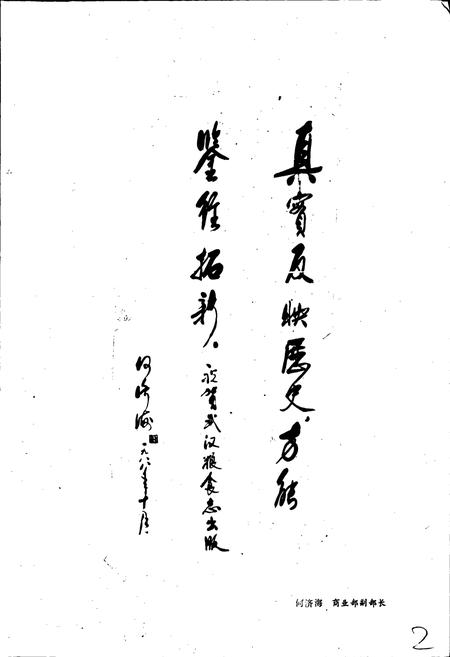 真實反映歷史，方能
鉴往拓新。
祝贺武汉粮食志出版
何济海
一九八八年十月
何济海 商业部副部长
2